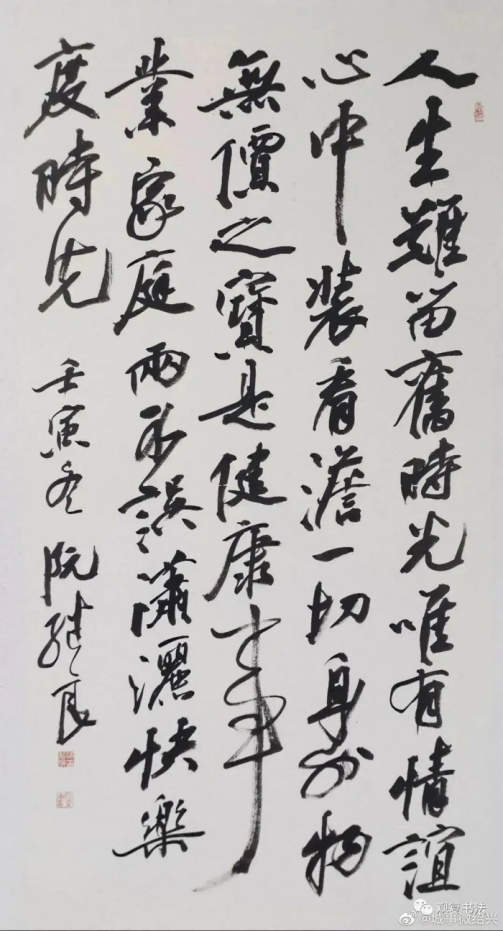 人生難留舊時光唯有情誼
心中裝看澹一切身外物
無價之寶是健康事
業家庭兩不誤瀟灑快樂
度時光
壬寅冬 阮繼良
观复书法
@城事微绍兴